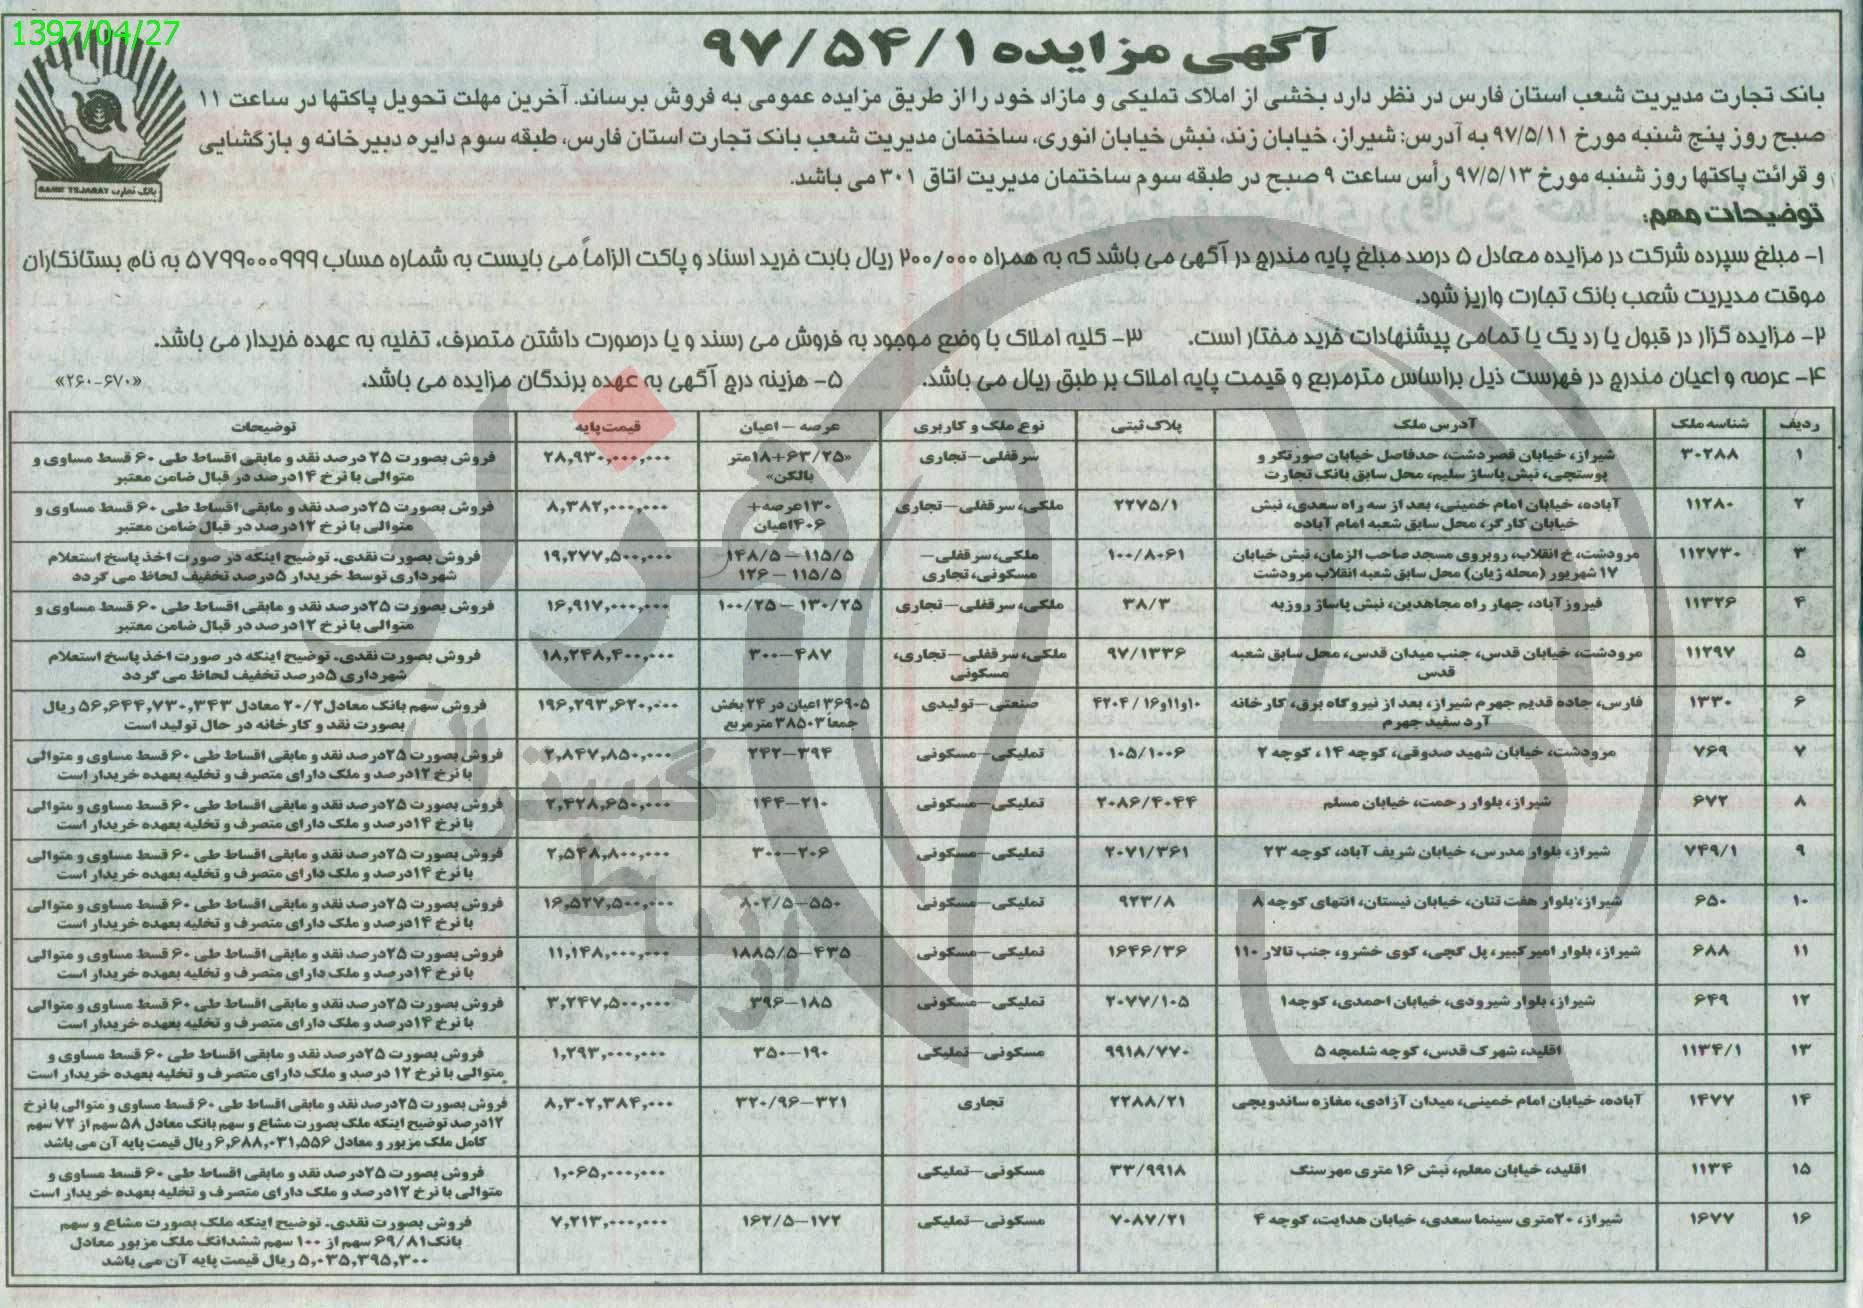 1397/04/27
آگهی مزایده ۹۷/۵۴/۱
بانک تجارت مدیریت شعب استان فارس در نظر دارد بخشی از املاک تملیکی و مازاد خود را از طریق مزایده عمومی به فروش برساند. آخرین مهلت تحویل پاکتها در ساعت ۱۱
صبح روز پنج شنبه مورخ ۹۷/۵/۱۱ به آدرس: شیراز، خیابان زند، نبش خیابان انوری، ساختمان مدیریت شعب بانک تجارت استان فارس، طبقه سوم دایره دبیرخانه و بازگشایی
و قرائت پاکتها روز شنبه مورخ ۹۷/۵/۱۳ رأس ساعت ۹ صبح در طبقه سوم ساختمان مدیریت اتاق ۳۰۱ می باشد.
بانک تجارت BANK TEJARAT
توضیحات مهم:
۱- مبلغ سپرده شرکت در مزایده معادل ۵ درصد مبلغ پایه مندرج در آگهی می باشد که به همراه ۲۰۰/۰۰۰ ریال بابت خرید اسناد و پاکت الزاماً می بایست به شماره حساب ۵۷۹۹۰۰۰۹۹۹ به نام بستانکاران
موقت مدیریت شعب بانک تجارت واریز شود.
۲- مزایده گزار در قبول یا رد یک یا تمامی پیشنهادات خرید مختار است. ۳- کلیه املاک با وضع موجود به فروش می رسند و یا درصورت داشتن متصرف، تخلیه به عهده خریدار می باشد.
۴- عرصه و اعیان مندرج در فهرست ذیل براساس مترمربع و قیمت پایه املاک بر طبق ریال می باشد. ۵- هزینه درج آگهی به عهده برندگان مزایده می باشد. «۲۶۰-۶۷۰»
ردیف شناسه ملک آدرس ملک پلاک ثبتی نوع ملک و کاربری عرصه – اعیان قیمت پایه توضیحات
۱ ۳۰۲۸۸ شیراز، خیابان قصردشت، حدفاصل خیابان صورتگر و سرقفلی–تجاری «۶۳/۲۵+۱۸متر ۲۸,۹۳۰,۰۰۰,۰۰۰ فروش بصورت ۲۵ درصد نقد و مابقی اقساط طی ۶۰ قسط مساوی و
پوستچی، نبش پاساژ سلیم، محل سابق بانک تجارت بالکن» متوالی با نرخ ۱۴درصد در قبال ضامن معتبر
۲ ۱۱۲۸۰ آباده، خیابان امام خمینی، بعد از سه راه سعدی، نبش ۲۲۷۵/۱ ملکی، سرقفلی–تجاری ۱۳۰عرصه+ ۸,۳۸۲,۰۰۰,۰۰۰ فروش بصورت ۲۵درصد نقد و مابقی اقساط طی ۶۰ قسط مساوی و
خیابان کارگر، محل سابق شعبه امام آباده ۴۰۶اعیان متوالی با نرخ ۱۲درصد در قبال ضامن معتبر
۳ ۱۱۲۷۳۰ مرودشت، خ انقلاب، روبروی مسجد صاحب الزمان، نبش خیابان ۱۰۰/۸۰۶۱ ملکی، سرقفلی– ۱۱۵/۵ – ۱۴۸/۵ ۱۹,۲۷۷,۵۰۰,۰۰۰ فروش بصورت نقدی. توضیح اینکه در صورت اخذ پاسخ استعلام
۱۷ شهریور (محله ژیان) محل سابق شعبه انقلاب مرودشت مسکونی، تجاری ۱۱۵/۵ – ۱۲۶ شهرداری توسط خریدار ۵درصد تخفیف لحاظ می گردد
۴ ۱۱۳۲۶ فیروزآباد، چهار راه مجاهدین، نبش پاساژ روزبه ۳۸/۳ ملکی، سرقفلی–تجاری ۱۳۰/۲۵ – ۱۰۰/۲۵ ۱۶,۹۱۷,۰۰۰,۰۰۰ فروش بصورت ۲۵درصد نقد و مابقی اقساط طی ۶۰ قسط مساوی و
متوالی با نرخ ۱۲درصد در قبال ضامن معتبر
۵ ۱۱۲۹۷ مرودشت، خیابان قدس، جنب میدان قدس، محل سابق شعبه ۹۷/۱۳۳۶ ملکی، سرقفلی–تجاری، ۴۸۷–۳۰۰ ۱۸,۲۴۸,۴۰۰,۰۰۰ فروش بصورت نقدی. توضیح اینکه در صورت اخذ پاسخ استعلام
قدس مسکونی شهرداری ۵درصد تخفیف لحاظ می گردد
۶ ۱۳۳۰ فارس، جاده قدیم جهرم شیراز، بعد از نیروگاه برق، کارخانه ۱۰و۱۱و۱۶ / ۴۲۰۴ صنعتی–تولیدی ۳۶۹۰۵ اعیان در ۲۴ بخش ۱۹۶,۲۹۳,۶۲۰,۰۰۰ فروش سهم بانک معادل ۲۰/۲ معادل ۵۶,۶۴۴,۷۳۰,۳۴۳ ریال
آرد سفید جهرم جمعاً ۳۸۵۰۳ مترمربع بصورت نقد و کارخانه در حال تولید است
۷ ۷۶۹ مرودشت، خیابان شهید صدوقی، کوچه ۱۴، کوچه ۲ ۱۰۵/۱۰۰۶ تملیکی–مسکونی ۳۹۴–۲۴۲ ۲,۸۴۷,۸۵۰,۰۰۰ فروش بصورت ۲۵درصد نقد و مابقی اقساط طی ۶۰ قسط مساوی و متوالی
با نرخ ۱۲درصد و ملک دارای متصرف و تخلیه بعهده خریدار است
۸ ۶۷۲ شیراز، بلوار رحمت، خیابان مسلم ۲۰۸۶/۴۰۴۴ تملیکی–مسکونی ۲۱۰–۱۴۴ ۲,۴۲۸,۶۵۰,۰۰۰ فروش بصورت ۲۵درصد نقد و مابقی اقساط طی ۶۰ قسط مساوی و متوالی
با نرخ ۱۴درصد و ملک دارای متصرف و تخلیه بعهده خریدار است
۹ ۷۴۹/۱ شیراز، بلوار مدرس، خیابان شریف آباد، کوچه ۲۳ ۲۰۷۱/۳۶۱ تملیکی–مسکونی ۲۰۶–۳۰۰ ۲,۵۴۸,۸۰۰,۰۰۰ فروش بصورت ۲۵درصد نقد و مابقی اقساط طی ۶۰ قسط مساوی و متوالی
با نرخ ۱۴درصد و ملک دارای متصرف و تخلیه بعهده خریدار است
۱۰ ۶۵۰ شیراز، بلوار هفت تنان، خیابان نیستان، انتهای کوچه ۸ ۹۲۳/۸ تملیکی–مسکونی ۵۵۰–۸۰۲/۵ ۱۶,۵۲۷,۵۰۰,۰۰۰ فروش بصورت ۲۵درصد نقد و مابقی اقساط طی ۶۰ قسط مساوی و متوالی
با نرخ ۱۴درصد و ملک دارای متصرف و تخلیه بعهده خریدار است
۱۱ ۶۸۸ شیراز، بلوار امیرکبیر، پل گچی، کوی خشرو، جنب تالار ۱۱۰ ۱۶۴۶/۳۶ تملیکی–مسکونی ۴۳۵–۱۸۸۵/۵ ۱۱,۱۴۸,۰۰۰,۰۰۰ فروش بصورت ۲۵درصد نقد و مابقی اقساط طی ۶۰ قسط مساوی و متوالی
با نرخ ۱۴درصد و ملک دارای متصرف و تخلیه بعهده خریدار است
۱۲ ۶۴۹ شیراز، بلوار شیرودی، خیابان احمدی، کوچه۱ ۲۰۷۷/۱۰۵ تملیکی–مسکونی ۱۸۵–۳۹۶ ۳,۲۴۷,۵۰۰,۰۰۰ فروش بصورت ۲۵درصد نقد و مابقی اقساط طی ۶۰ قسط مساوی و متوالی
با نرخ ۱۴درصد و ملک دارای متصرف و تخلیه بعهده خریدار است
۱۳ ۱۱۳۴/۱ اقلید، شهرک قدس، کوچه شلمچه ۵ ۹۹۱۸/۷۷۰ مسکونی–تملیکی ۱۹۰–۳۵۰ ۱,۲۹۳,۰۰۰,۰۰۰ فروش بصورت ۲۵درصد نقد و مابقی اقساط طی ۶۰ قسط مساوی و
متوالی با نرخ ۱۲ درصد و ملک دارای متصرف و تخلیه بعهده خریدار است
۱۴ ۱۴۷۷ آباده، خیابان امام خمینی، میدان آزادی، مغازه ساندویچی ۲۲۸۸/۲۱ تجاری ۳۲۱–۳۲۰/۹۶ ۸,۳۰۲,۳۸۴,۰۰۰ فروش بصورت ۲۵درصد نقد و مابقی اقساط طی ۶۰ قسط مساوی و متوالی با نرخ
۱۲درصد توضیح اینکه ملک بصورت مشاع و سهم بانک معادل ۵۸ سهم از ۷۲ سهم
کامل ملک مزبور و معادل ۶,۶۸۸,۰۳۱,۵۵۶ ریال قیمت پایه آن می باشد
۱۵ ۱۱۳۴ اقلید، خیابان معلم، نبش ۱۶ متری مهرسنک ۳۳/۹۹۱۸ مسکونی–تملیکی ۱,۰۶۵,۰۰۰,۰۰۰ فروش بصورت ۲۵درصد نقد و مابقی اقساط طی ۶۰ قسط مساوی و
متوالی با نرخ ۱۲درصد و ملک دارای متصرف و تخلیه بعهده خریدار است
۱۶ ۱۶۷۷ شیراز، ۲۰متری سینما سعدی، خیابان هدایت، کوچه ۴ ۷۰۸۷/۲۱ مسکونی–تملیکی ۱۷۲–۱۶۲/۵ ۷,۲۱۳,۰۰۰,۰۰۰ فروش بصورت نقدی. توضیح اینکه ملک بصورت مشاع و سهم
بانک۶۹/۸۱ سهم از ۱۰۰ سهم ششدانگ ملک مزبور معادل
۵,۰۳۵,۳۹۵,۳۰۰ ریال قیمت پایه آن می باشد